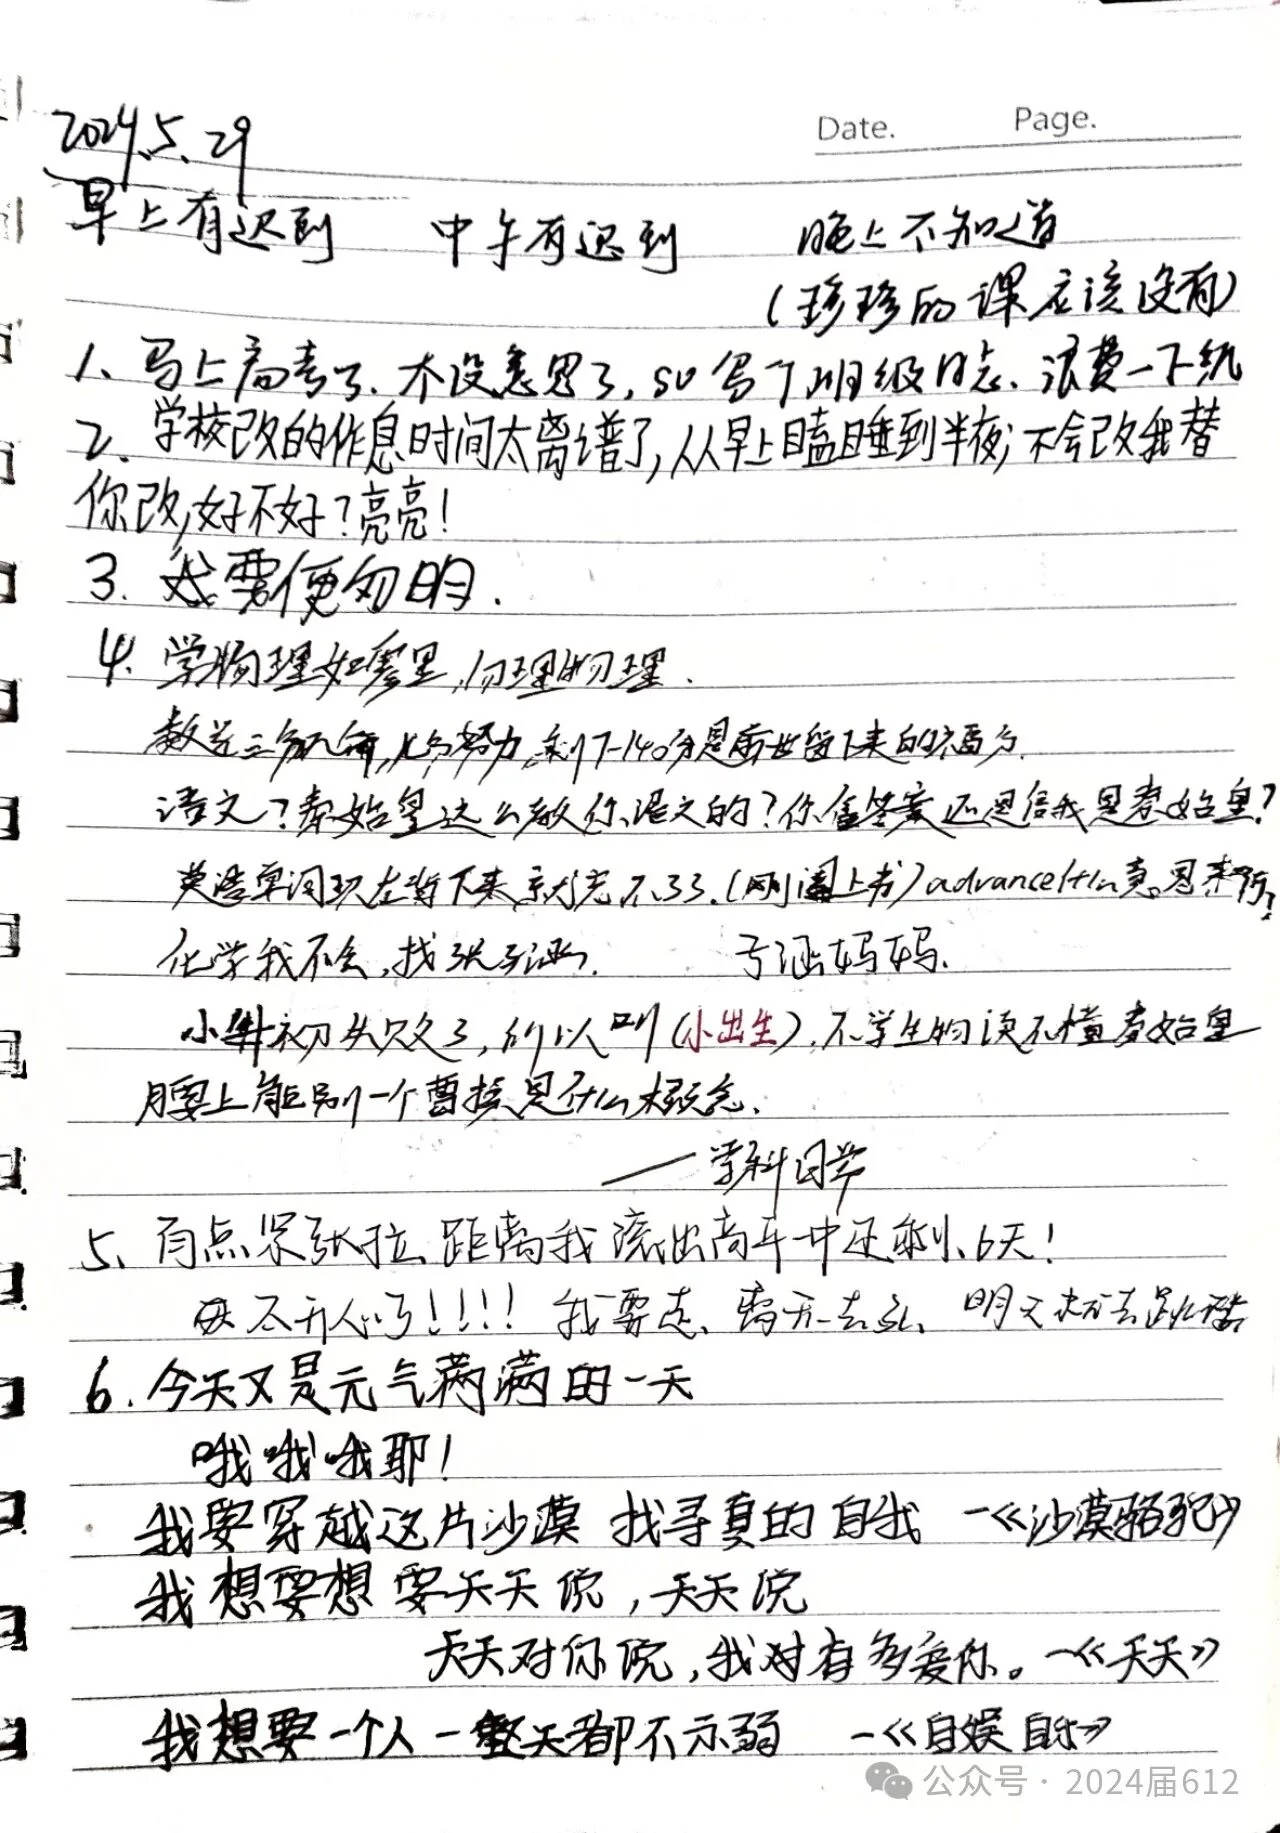 Date. Page.
2024.5.29
早上有迟到 中午有迟到 晚上不知道
(珍珍的课应该没有)
1、马上高考了、太没意思了,so写了班级日志、浪费一下纸
2、学校改的作息时间太离谱了,从早上瞌睡到半夜;不会改我替
你改,好不好?亮亮!
3. 我要便勿明.
4. 学物理如雾里,勿理物理.
数学三分天命,七分努力,剩下-140分是前世留下来的福分.
语文?秦始皇这么教你语文的?你信答案还是信我是秦始皇?
英语单词现在背下来就忘不33.(刚阖上书)advance什么意思来着?
化学我不会,找张子涵. 子涵妈妈.
小升初失败了,所以叫(小出生).不学生物谈不懂秦始皇
腰上能别一个曹操是什么概念.
——学科同学
5、有点紧张拉、距离我滚出高平一中还剩6天!
好不开心丂!!!! 我要走、离开去玩、明天就去跳楼
6.今天又是元气满满的一天
哦哦哦耶!
我要穿越这片沙漠 找寻真的自我 —《沙漠骆驼》
我想要想要天天说,天天说
天天对你说,我对有多爱你。—《天天》
我想要一个人一整天都不示弱 —《自娱自乐》
公众号·2024届612